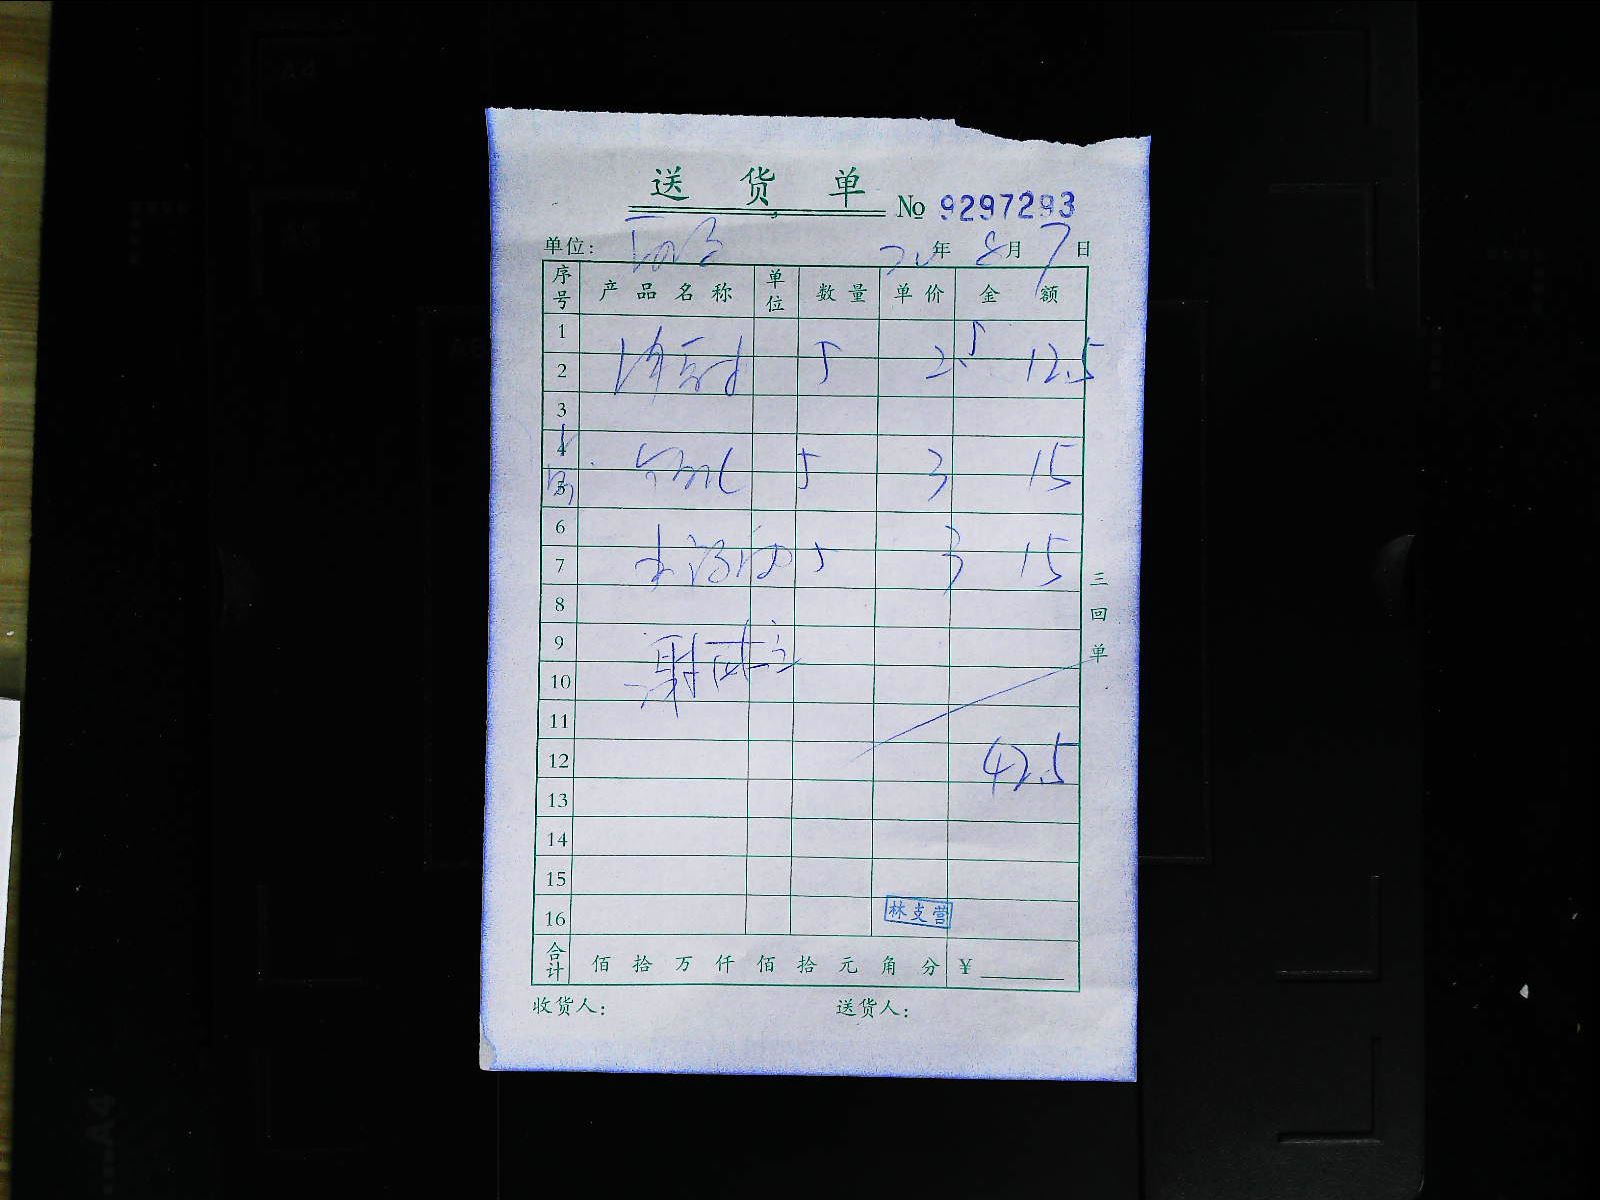 送 货 单
№ 9297293
单位: 年 8月 7日
序号 产品名称 单位 数量 单价 金额
1
2 5 2.5 12.5
3
4 5 3 15
5
6
7 5 3 15
8
9 谢
10
11
12 42.5
13
14
15
16 林支营
合计 佰 拾 万 仟 佰 拾 元 角 分 ¥
收货人: 送货人:
三回单